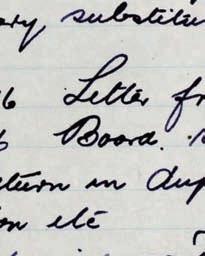 ary substitu
6 Letter fr
Board.
eturn in dup
on etc